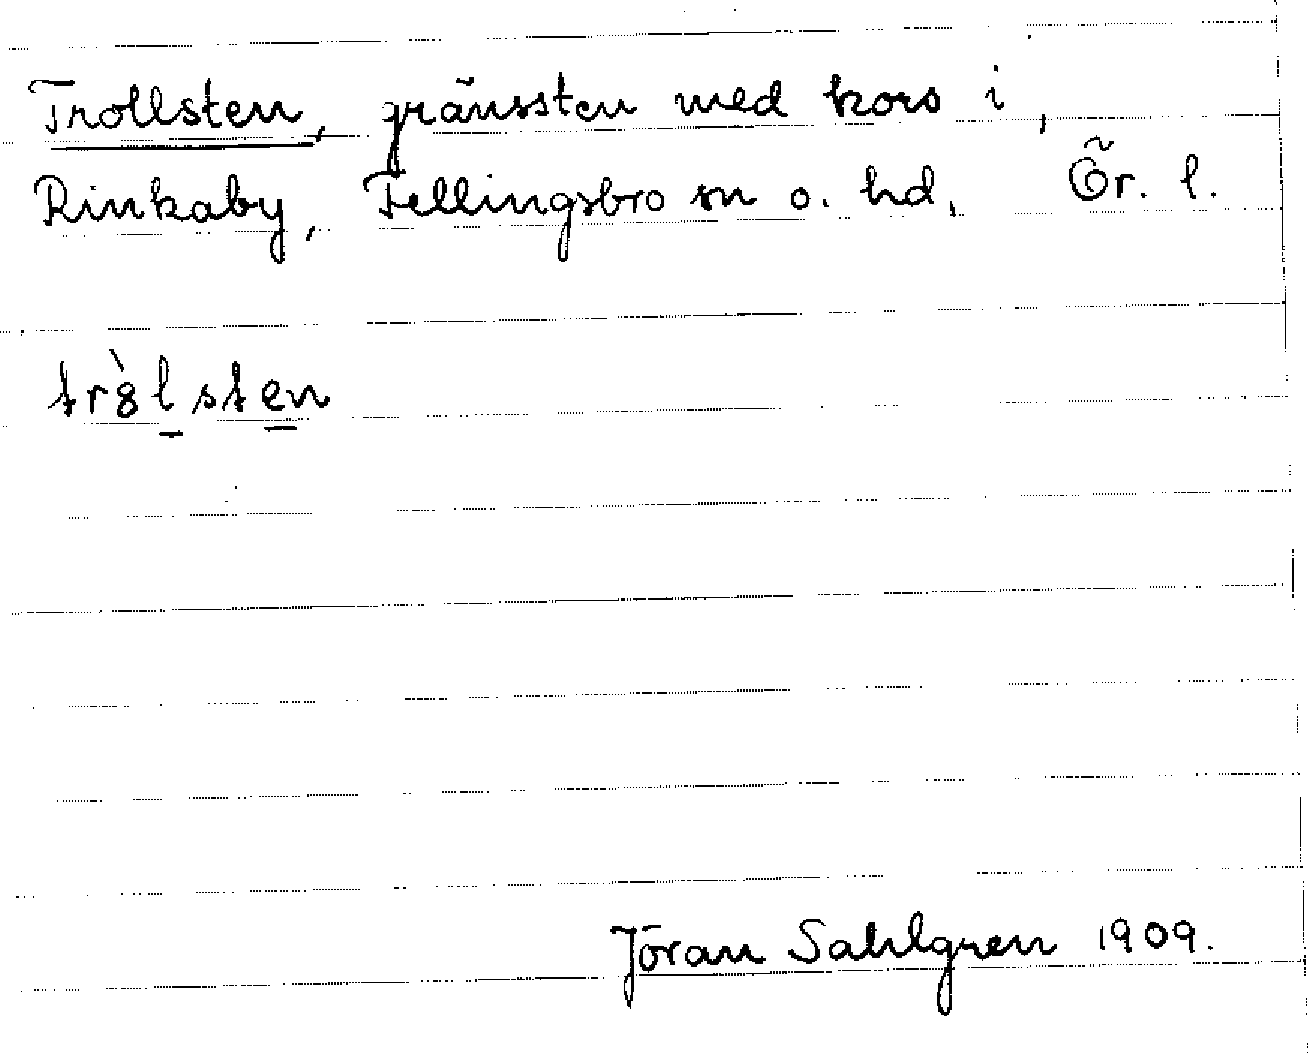 Trollsten, gränssten med kors i,
Rinkaby, Fellingsbro sn o. hd, Ör. l.
trò̀lsten
Jöran Sahlgren 1909.